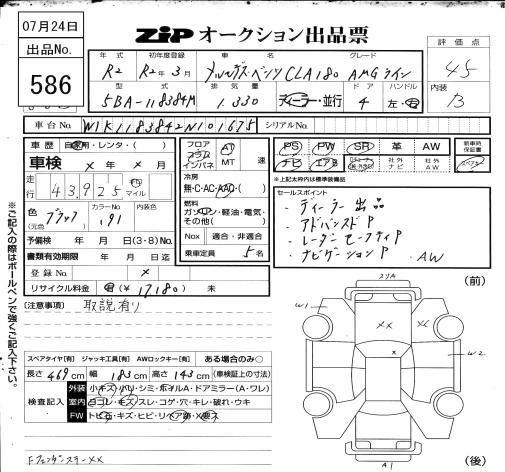 07月24日
ZiP オークション出品票
出品No.
586
年式 初年度登録 車名 グレード
R2 R2年3月 メルセデス・ベンツ CLA180 AMGライン
型式 排気量 ドア ハンドル
5BA-118384M 1.330 ディーラー・並行 4 左・右
評価点
4.5
内装
B
車台No. W1K1183842N101675 シリアルNo.
車歴 自家用・レンタ・( )
車検 × 年 × 月
走行 43,925 マイル
色 (元色) ブラック カラーNo. 191 内装色
予備検 年 月 日(3・8)No.
書類有効期限 年 月 日迄
登録No. ×
リサイクル料金 有(¥ 17,180) 未
フロア コラム インパネ AT MT 速
冷房 無・C・AC・AAC・( )
燃料 ガソリン・軽油・電気・その他( )
Nox 適合・非適合
乗車定員 5名
PS PW SR 革 AW
ナビ エアB 社外ナビ 社外AW
新車時保証書
スペアキー
※上記太枠内は標準装備品
セールスポイント
・ディーラー出品
・アドバンスドP
・レーダーセーフティP
・ナビゲーションP ・AW
※ご記入の際はボールペンで強くご記入下さい。
(注意事項) 取説有り
スペアタイヤ[有] ジャッキ工具[有] AWロックキー[有] ある場合のみ○
長さ 469cm 幅 183cm 高さ 143cm (車検証上の寸法)
検査記入
外装 小キズ・小凹・シミ・ホイルA・ドアミラー(A・ワレ)
室内 ヨゴレ・キズ・スレ・コゲ・穴・キレ・破れ・ウキ
FW トビ石・キズ・ヒビ・リペア跡・X要ス
Fフェンダーステー××
(前)
スリA
W1
××
××
×
W2
A1
(後)